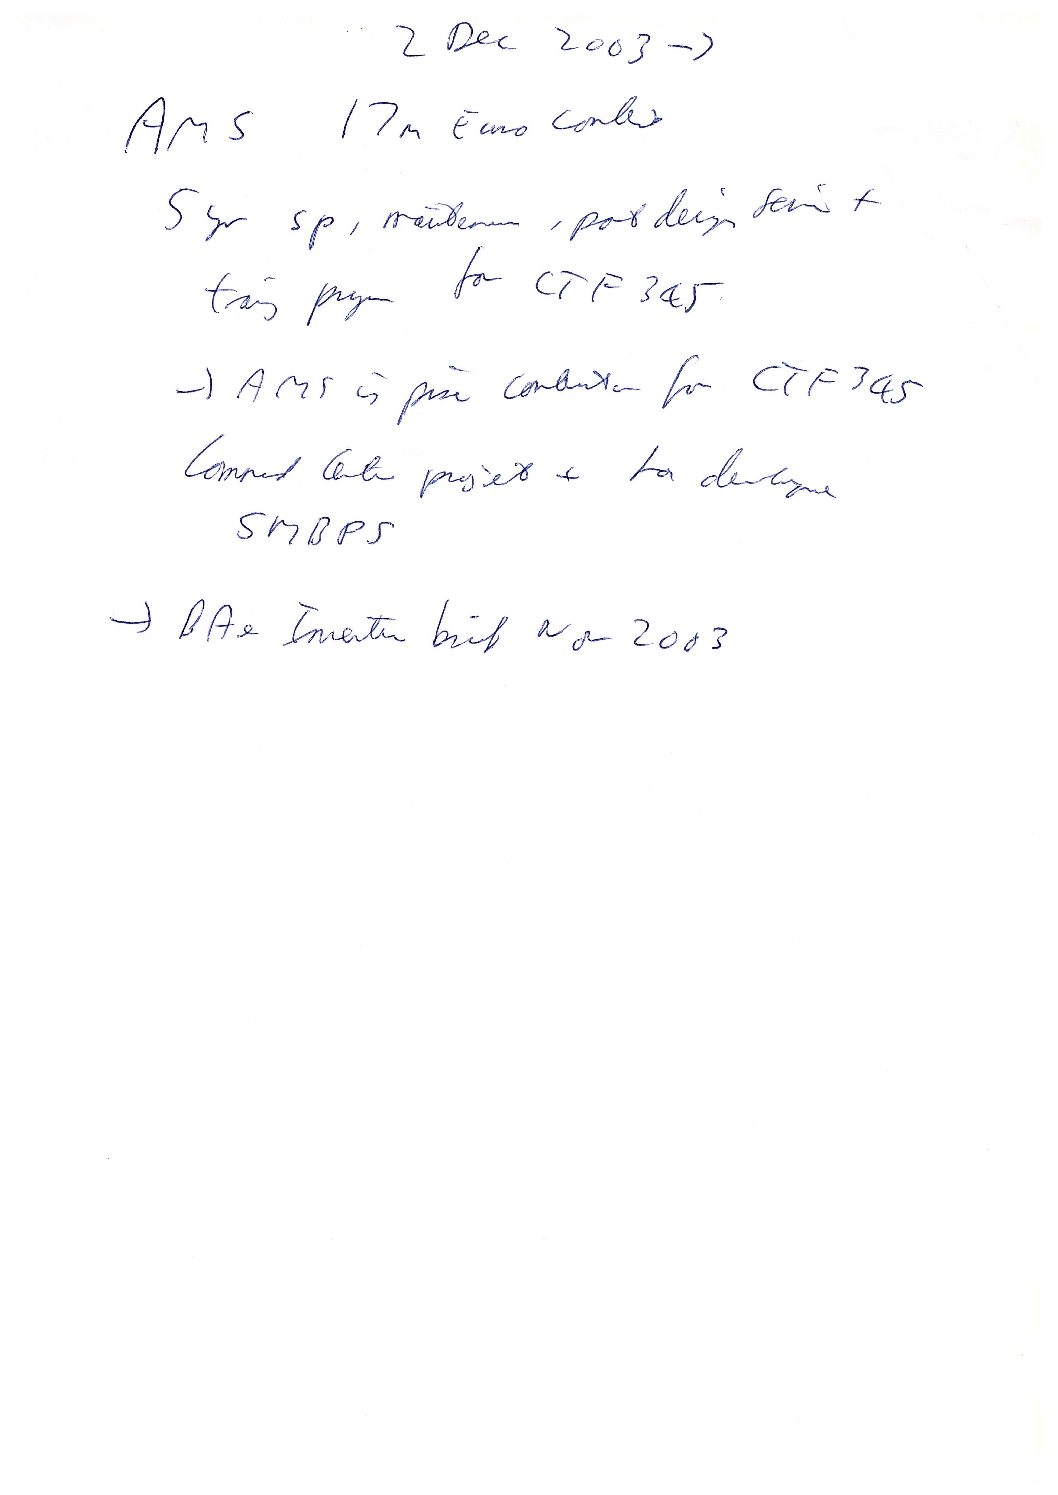 2 Dec 2003 →
AMS 17m Euro contract
5 yr sp, maintenance, post design service +
training program for CTF 345
→ AMS is prime contractor for CTF 345
Command Centre project + has developed
SMBPS
→ BAe Investor brief Nov 2003